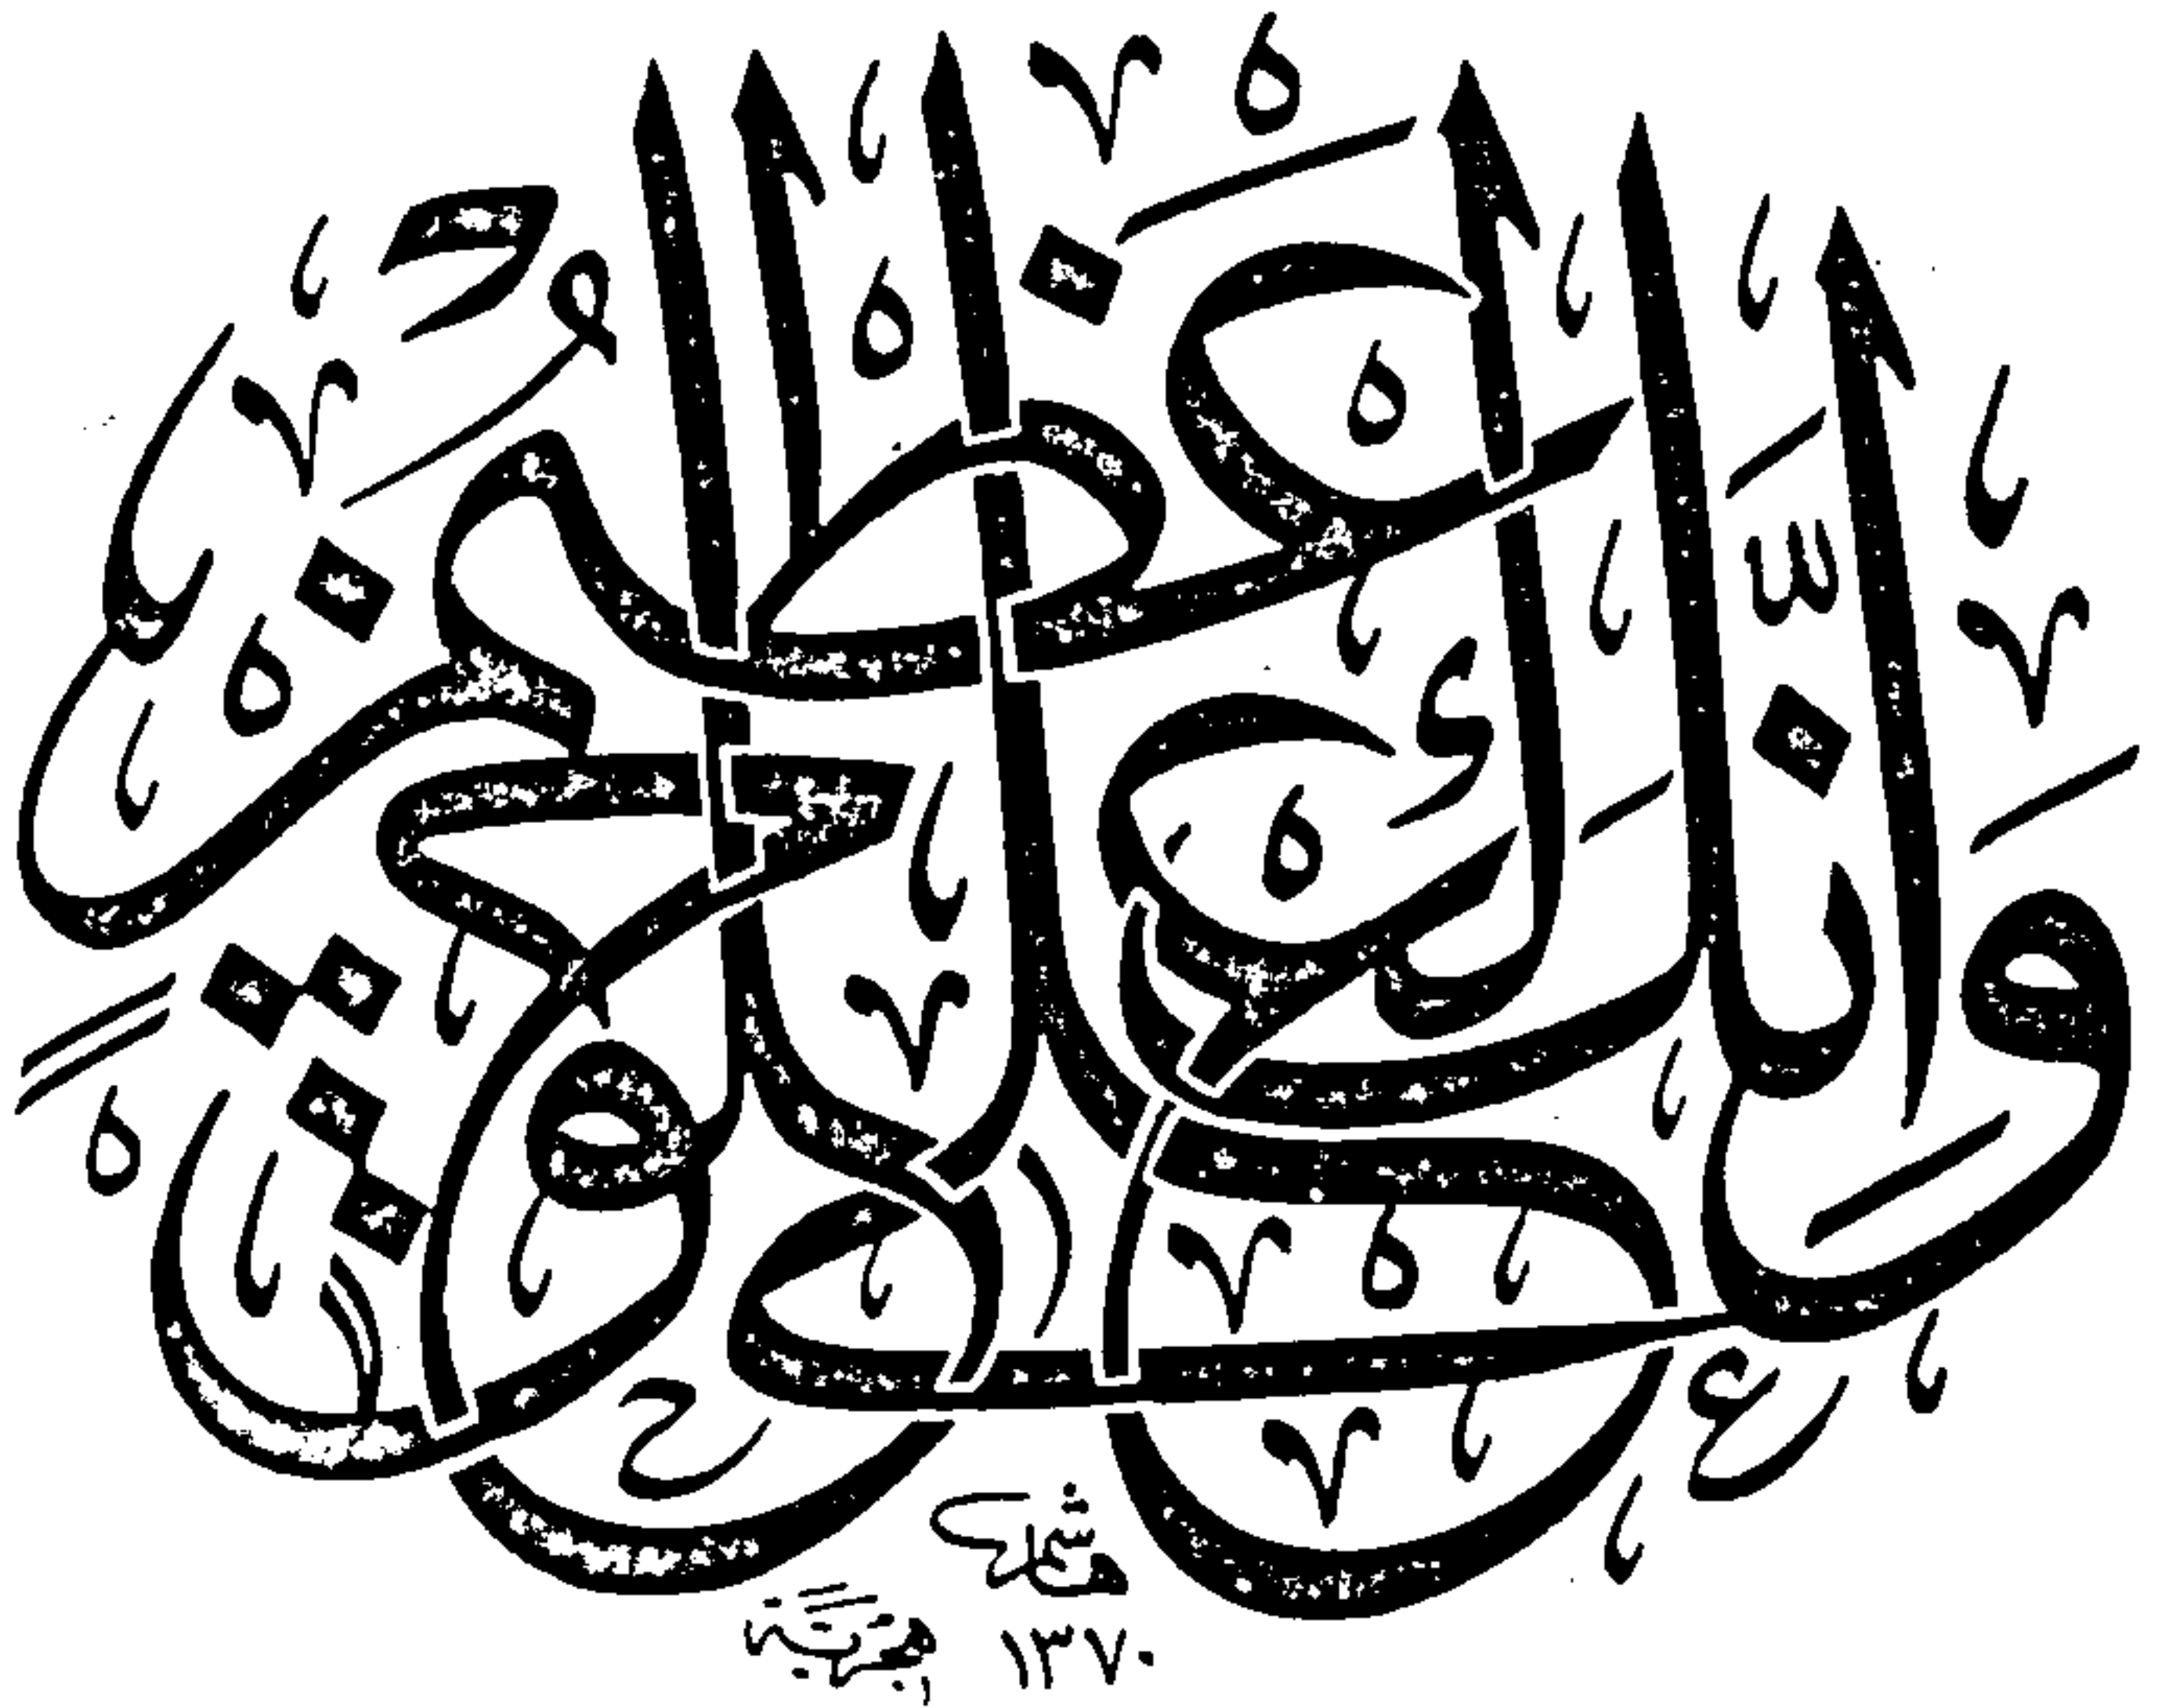 وإنك لعلى خلق عظيم
١٣٧٠ هجرية